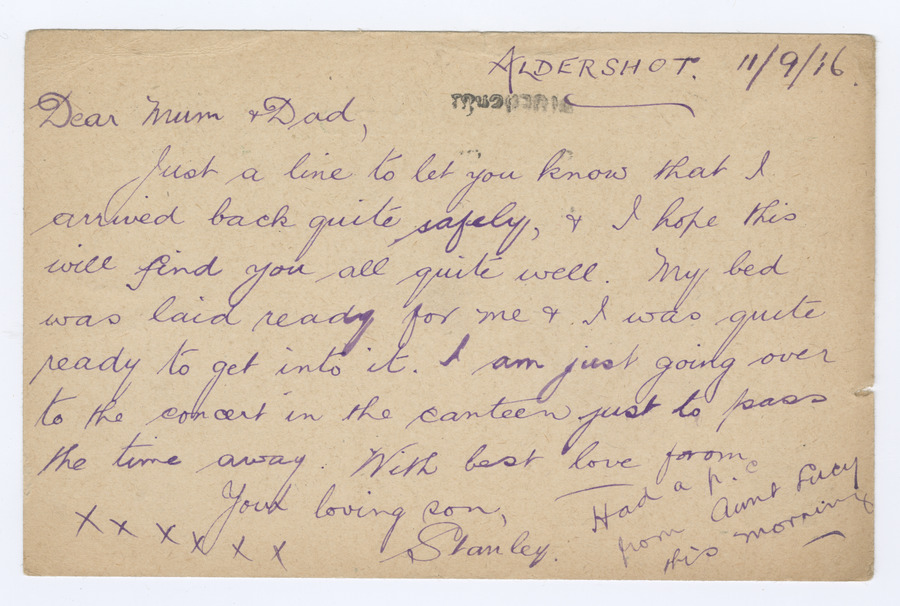 ALDERSHOT. 11/9/16.
Dear Mum & Dad,
Just a line to let you know that I
arrived back quite safely, & I hope this
will find you all quite well. My bed
was laid ready for me & I was quite
ready to get into it. I am just going over
to the concert in the canteen just to pass
the time away. With best love from
Your loving son,
Stanley.
x x x x x x
Had a p.c
from Aunt Lucy
this morning